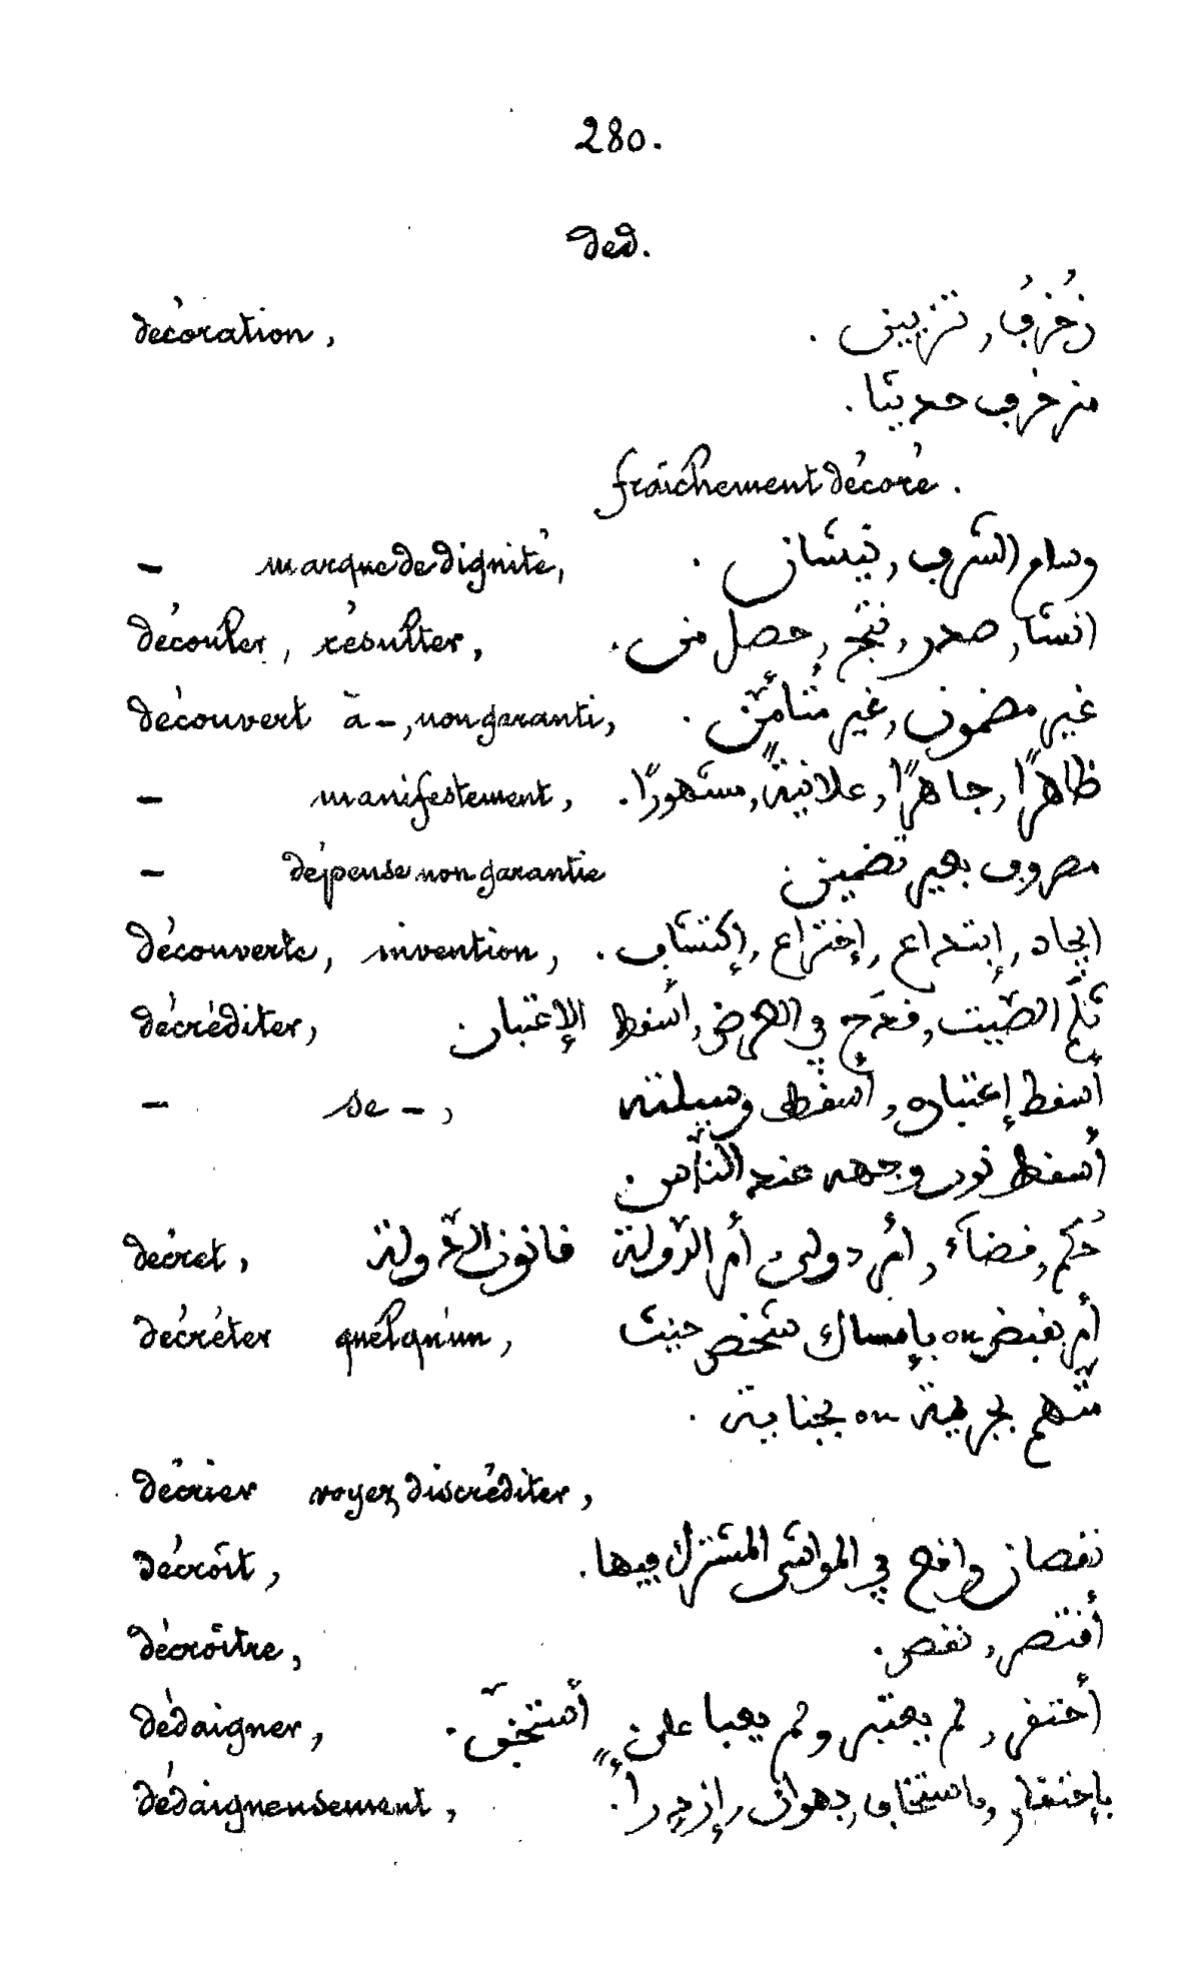 280.
ded.
décoration, زُخْرُف, تزيين.
مزخرف حديثا.
fraîchement décoré.
— marque de dignité, وسام الشرف, نيشان.
découler, résulter, انشا, صدر, نتج, حصل من.
découvert à —, non garanti, غير مضمون, غير مُتأمّن.
— manifestement, ظاهرًا, جاهرًا, علانيةً, مشهورًا.
— dépense non garantie مصروف بغير تضمين
découverte, invention, ايجاد, إبتداع, إختراع, إكتشاف.
décréditer, ثلّم الصّيت, قدَح في العرض, أسقط الإعتبار.
— se —, أسقط إعتباره, أسقط وسيلته
أسقط نور وجهه عند النّاس.
décret, حُكم, قضآء, أمر دولي, أمر الدّولة قانون الدّولة
décréter quelqu'un, أمر بقبض ou بإمساك شخص حيث
متّهم بجريمة ou بجناية.
décrier voyez discréditer,
décroît, نقصان واقع في المواشي المشترك فيها.
décroître, أقتصر, نقص.
dédaigner, أحتقر, لم يعتبر ولم يعبا على, أستخفّ.
dédaigneusement, بإحتقار, باستخفاف, بهوان, إزدراءً.